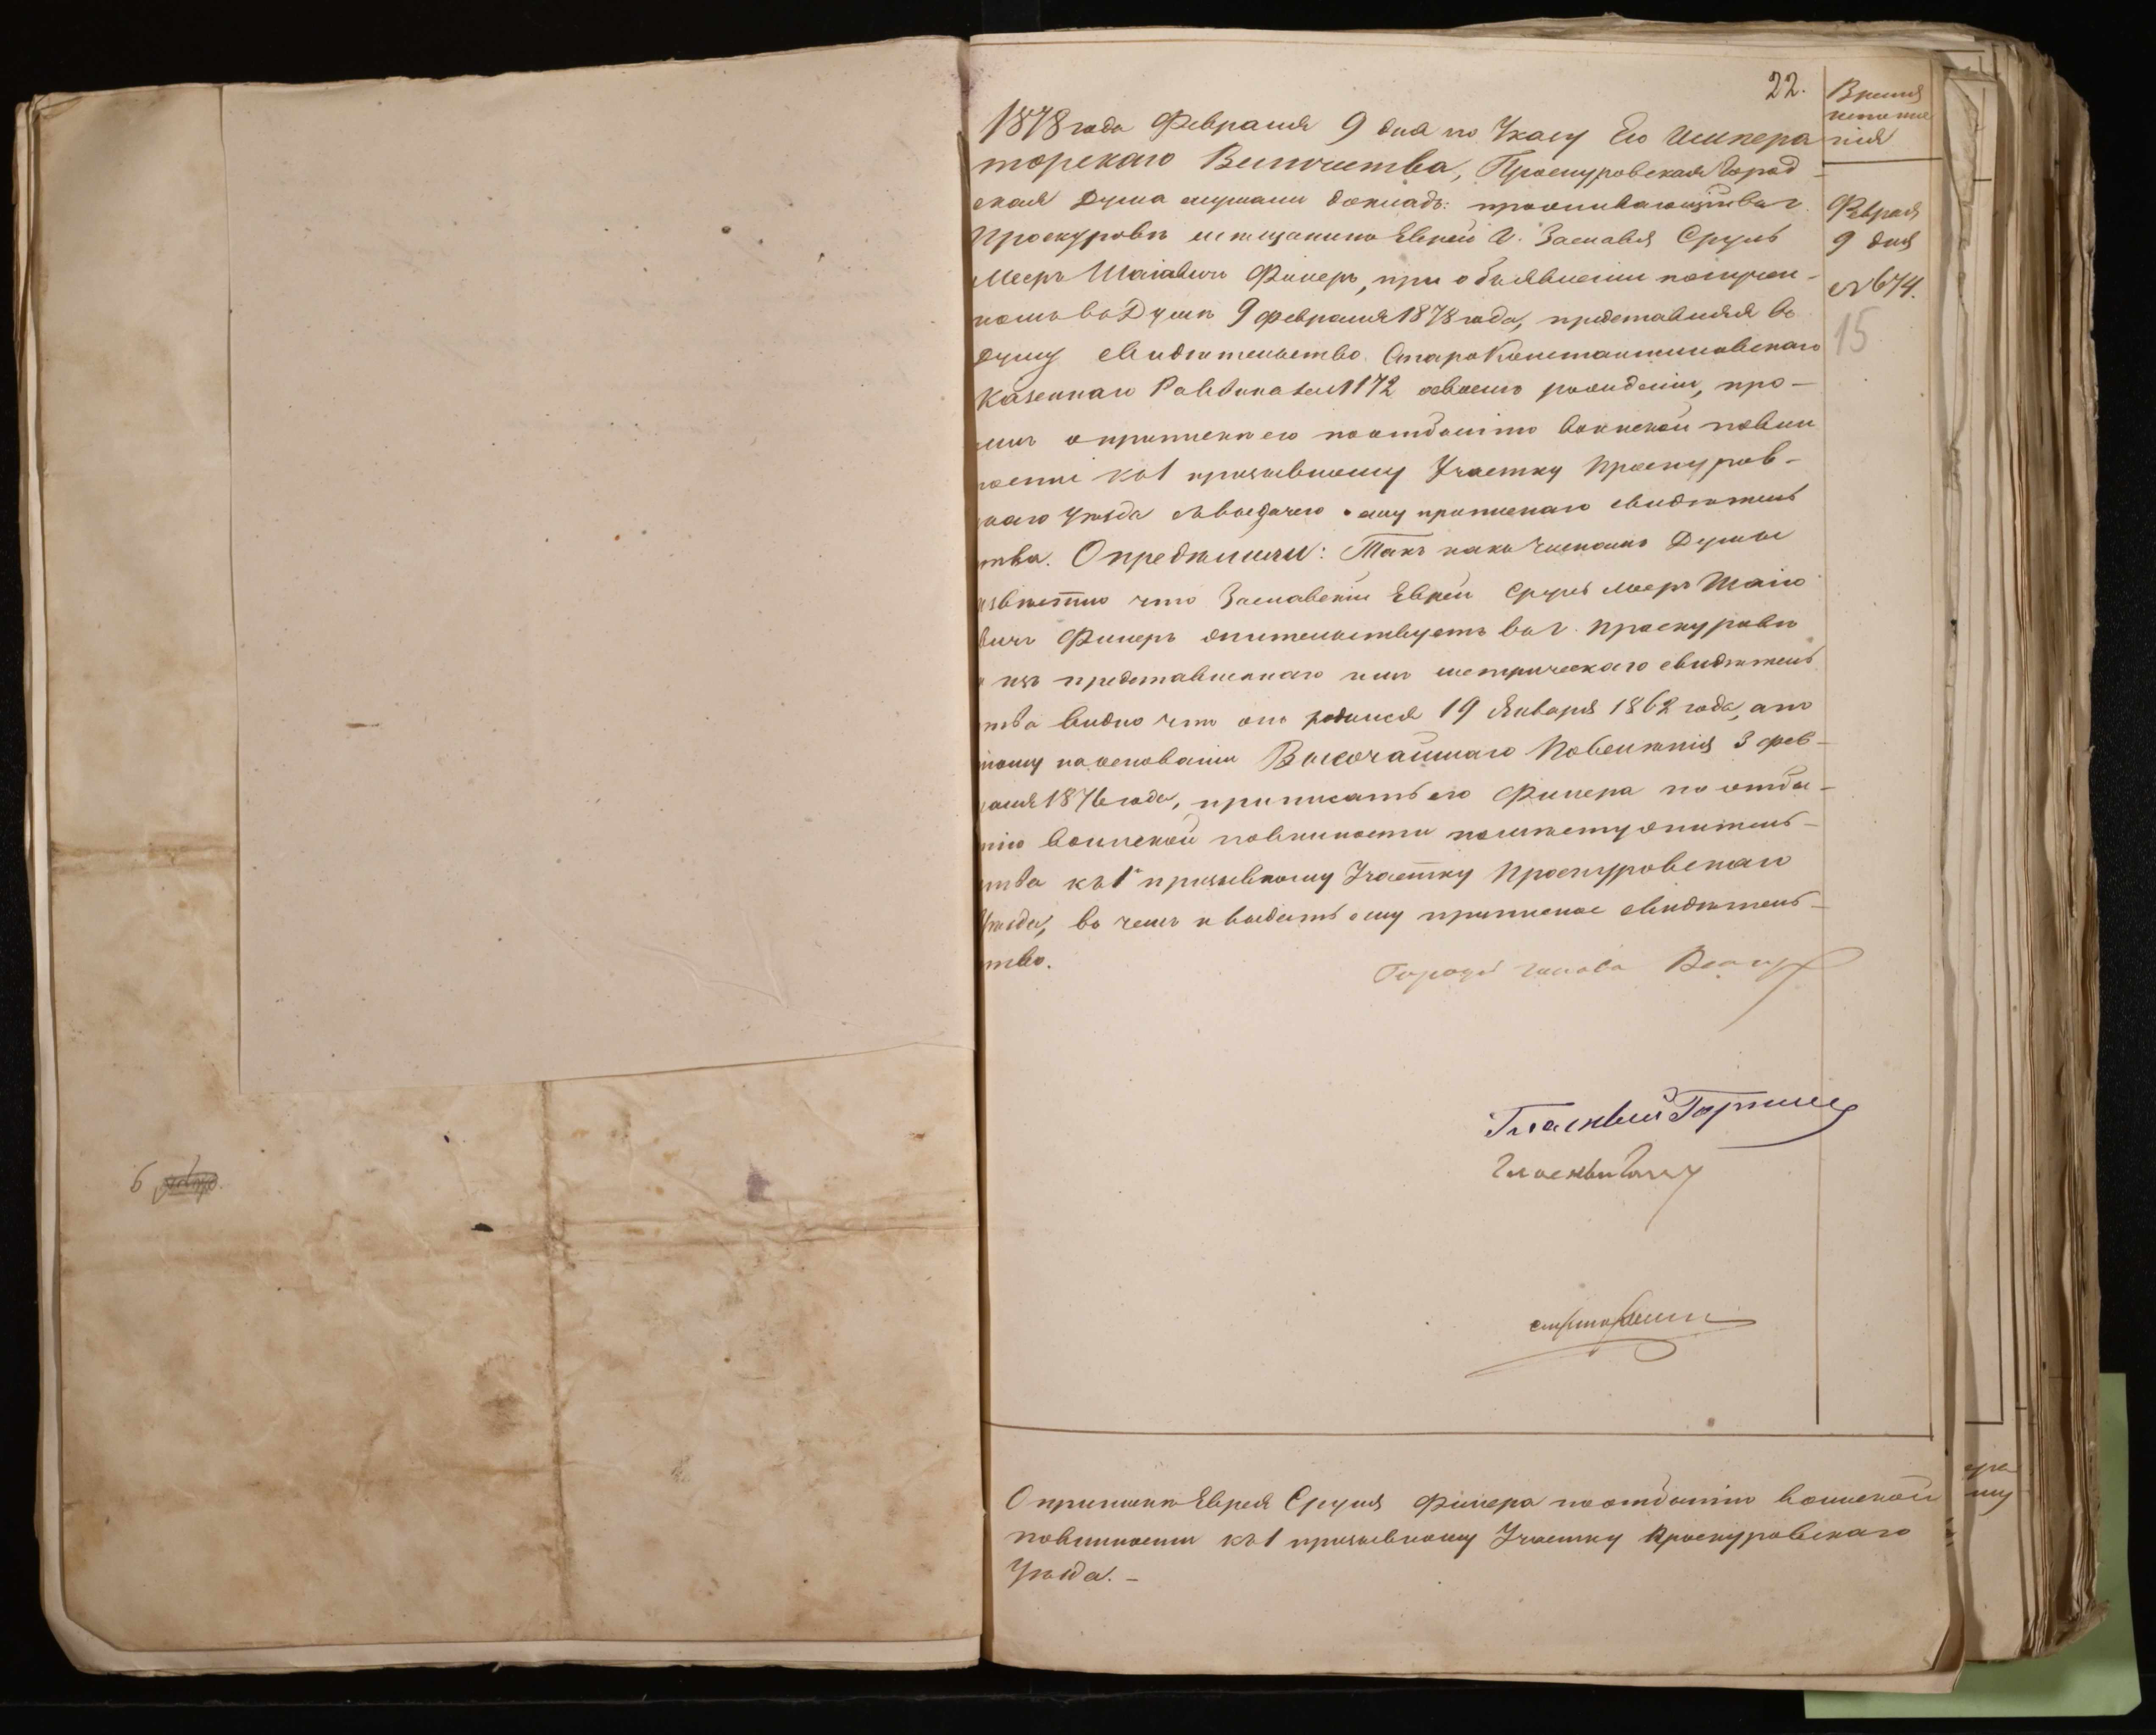 22.
Время
исполне
нія
1878 года Февраля 9 дня по Указу Его Импера
торскаго Величества, Проскуровская Город-
ская Дума слушали докладъ: проживающій въ г.
Проскуровѣ мѣщанинъ Еврей г. Заславля Сруль
Мееръ Шаіовичъ Фикеръ, при объявленіи получен-
номъ въ Думѣ 9 февраля 1878 года, представляя въ
Думу свидѣтельство Старо Константиновскаго
Казеннаго Раввина за №1172 о своемъ рожденіи, про-
ситъ о припискѣ его по отбытію воинской повин
ности къ 1 призывному Участку Проскуров-
скаго Уѣзда съ выдачею ему приписнаго свидѣтель
ства. Опредѣлили: Такъ какъ Членамъ Думы
извѣстно что Заславскій Еврей Сруль Мееръ Шаіо
вичъ Фикеръ жительствуетъ въ г. Проскуровѣ
и изъ представленнаго имъ метрическаго свидѣтель
ства видно что онъ родился 19 Января 1862 года, а по
тому на основаніи Высочайшаго Повелѣнія 3 фев-
раля 1876 года, приписать его Фикера по отбы-
тію воинской повинности по мѣсту жительс-
тва къ 1 призывному Участку Проскуровскаго
Уѣзда, въ чемъ и выдать ему приписное свидѣтельс-
тво.
Февраля
9 дня
№674.
15
Город голова
Гласный
Гласный
6
О припискѣ Еврея Сруля Фикера по отбытію воинской
повинности къ 1 призывному Участку Проскуровскаго
Уѣзда. –